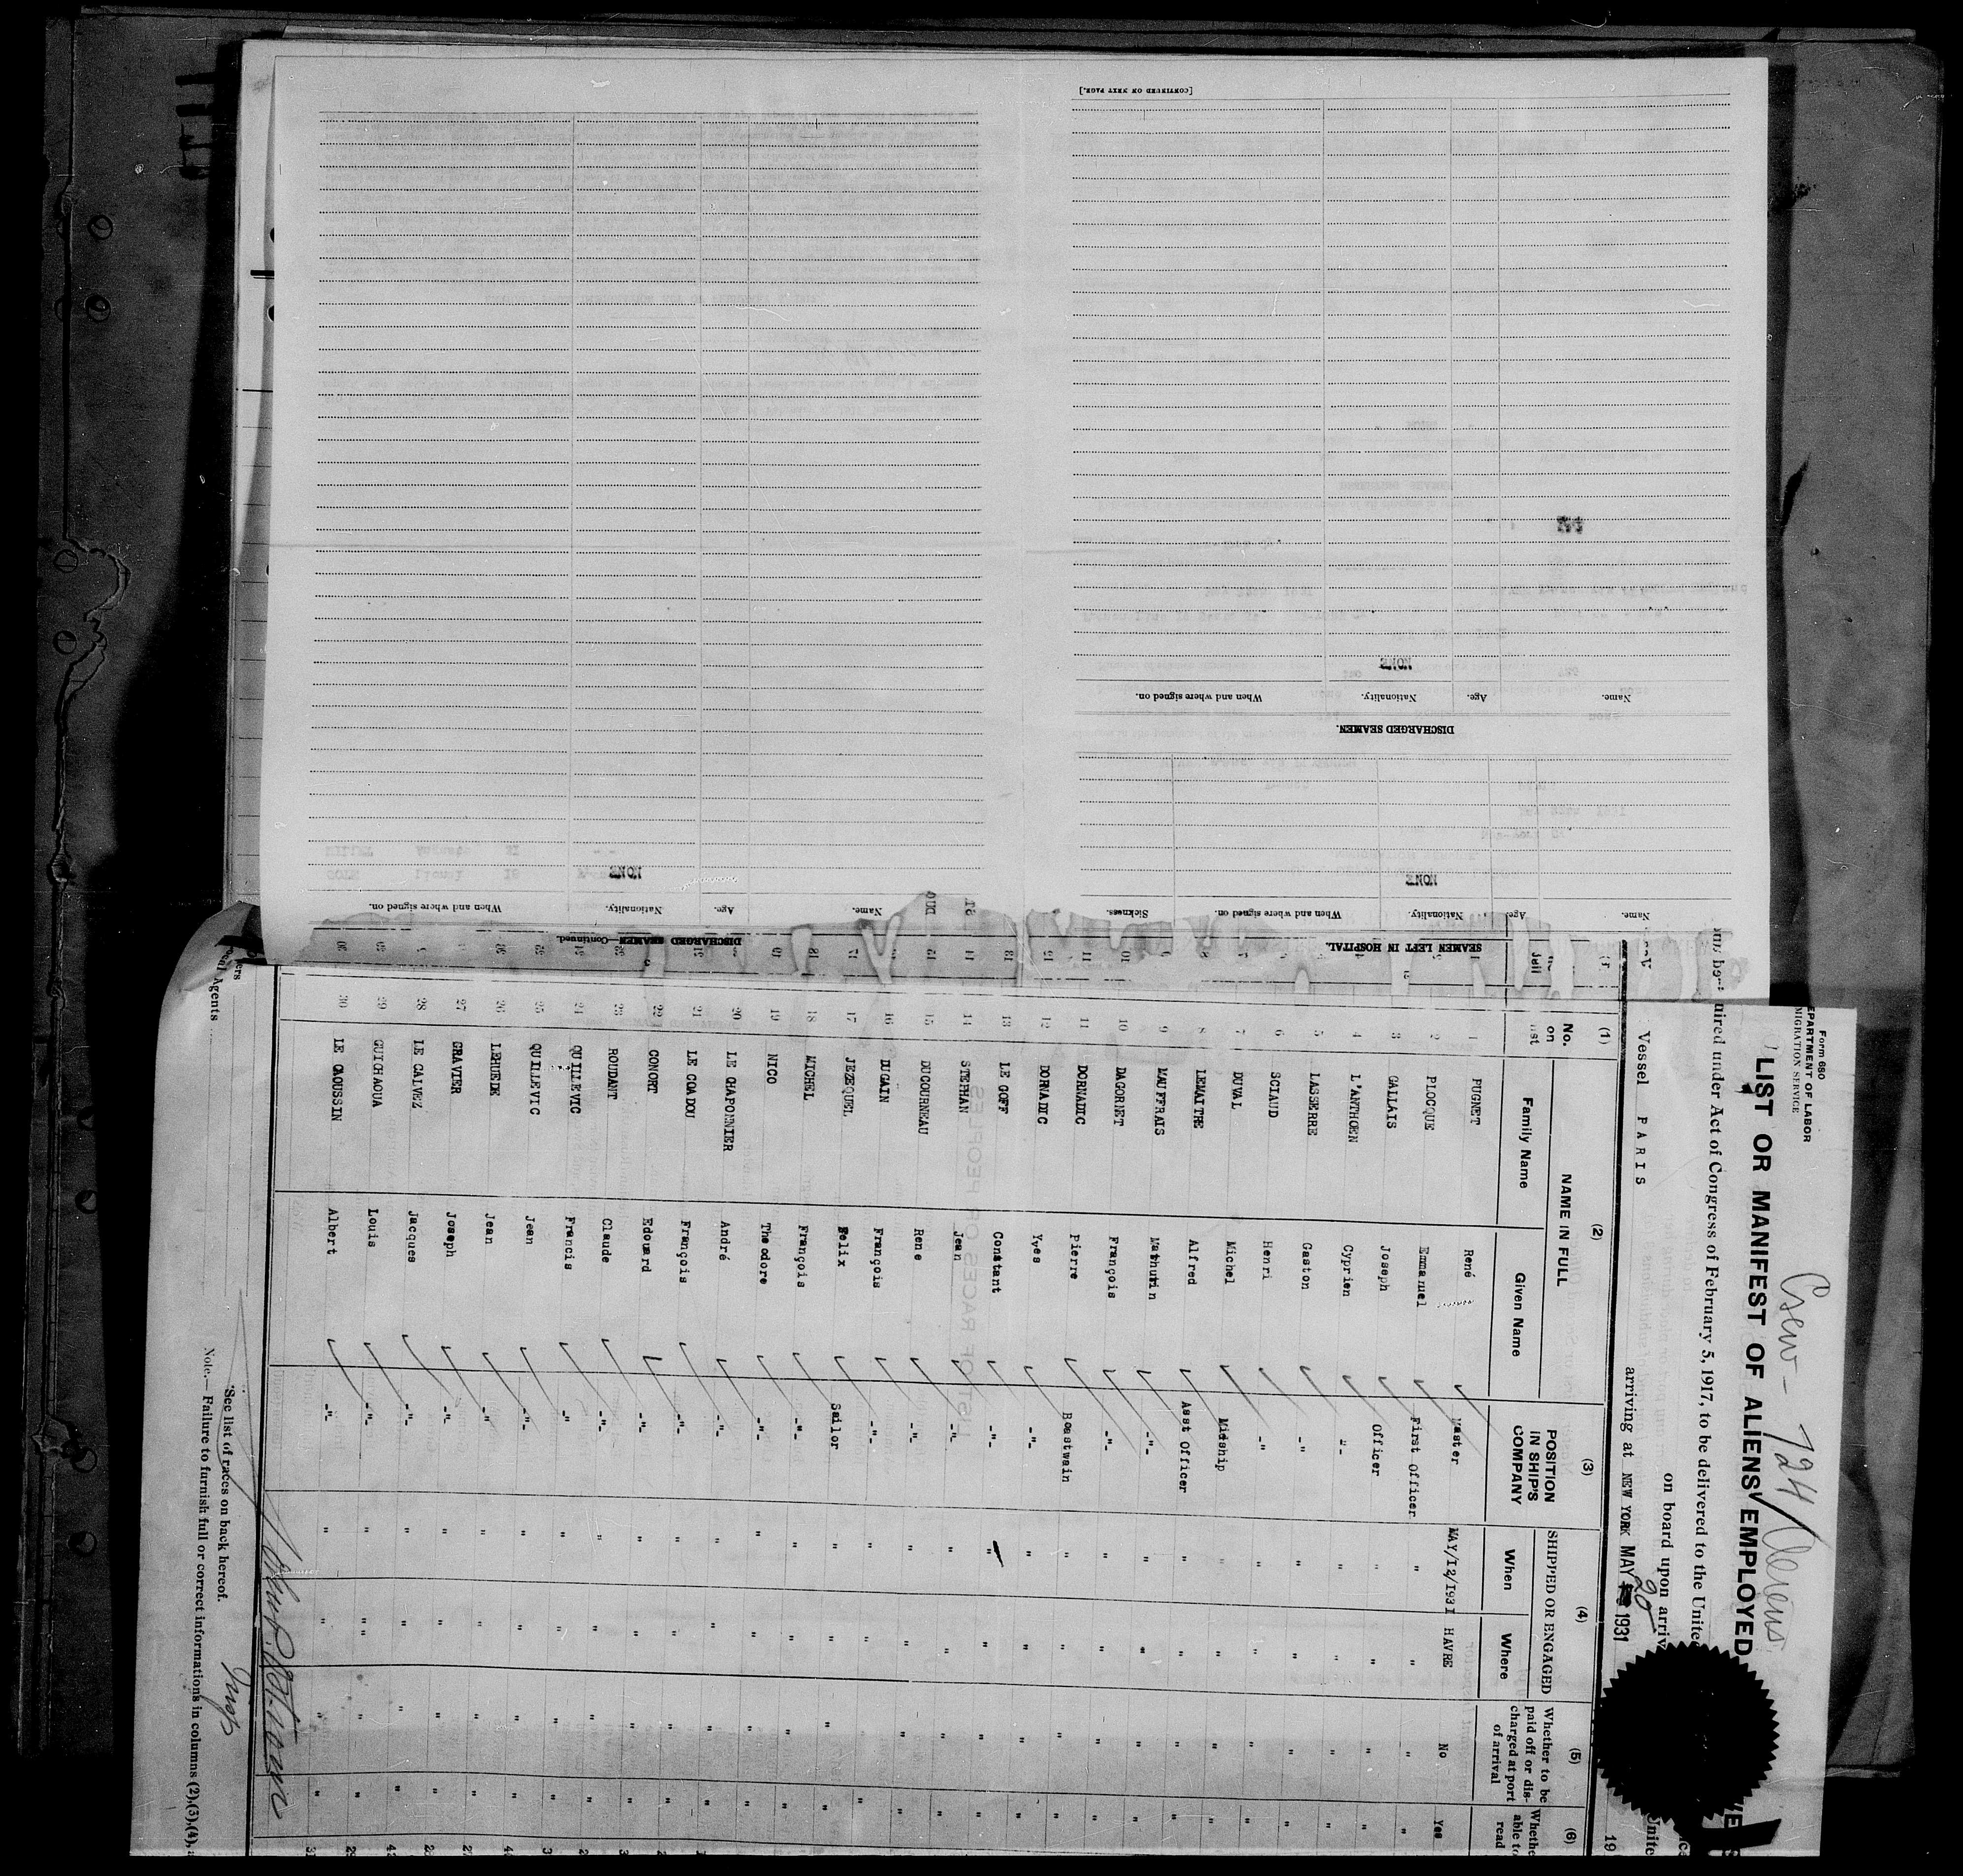 [CONTINUED ON NEXT PAGE.]
NONE
Name. Age. Nationality. When and where signed on.
DISCHARGED SEAMEN.
NONE
Name. Age. Nationality. When and where signed on. Sickness.
SEAMEN LEFT IN HOSPITAL.
NONE
Name. Age. Nationality. When and where signed on.
DISCHARGED SEAMEN—Continued.
Form 680
DEPARTMENT OF LABOR
IMMIGRATION SERVICE
Crew - 724 Aliens
LIST OR MANIFEST OF ALIENS EMPLOYED
uired under Act of Congress of February 5, 1917, to be delivered to the Unite
on board upon arriv
Vessel PARIS arriving at NEW YORK MAY 20 1931 19
(1) (2) (3) (4) (5) (6)
No. on list NAME IN FULL POSITION IN SHIP'S COMPANY SHIPPED OR ENGAGED Whether to be paid off or discharged at port of arrival Whethe able to read
Family Name Given Name When Where
1 PUGNET René Master MAY/12/1931 HAVRE No Yes
2 PLOCQUE Emmanuel First Officer " " " "
3 GALLAIS Joseph Officer " " " "
4 L'ANTHOEN Cyprien -"- " " " "
5 LASSERRE Gaston -"- " " " "
6 SCIAUD Henri -"- " " " "
7 DUVAL Michel Midship " " " "
8 LEMAITRE Alfred Asst Officer " " " "
9 MAUFFRAIS Mathurin -"- " " " "
10 DAGORNET François -"- " " " "
11 DORNADIC Pierre Boastwain " " " "
12 DORNADIC Yves -"- " " " "
13 LE GOFF Constant -"- " " " "
14 STEPHAN Jean -"- " " " "
15 DUCOURNEAU Rene -"- " " " "
16 DUGAIN François -"- " " " "
17 JEZEQUEL Felix Sailor " " " "
18 MICHEL François -"- " " " "
19 NICO Theodore -"- " " " "
20 LE CHAPONNIER André -"- " " " "
21 LE COADOU François -"- " " " "
22 CONORT Edouard -"- " " " "
23 ROUDANT Claude -"- " " " "
24 QUILLEVIC Francis -"- " " " "
25 QUILLEVIC Jean -"- " " " "
26 LEHUEDE Jean -"- " " " "
27 GRAVIER Joseph -"- " " " "
28 LE CALVEZ Jacques -"- " " " "
29 GUICHAOUA Louis -"- " " " "
30 LE CAOUSSIN Albert -"- " " " "
Agents
*See list of races on back hereof.
Insp
Note.— Failure to furnish full or correct informations in columns (2),(3),(4),